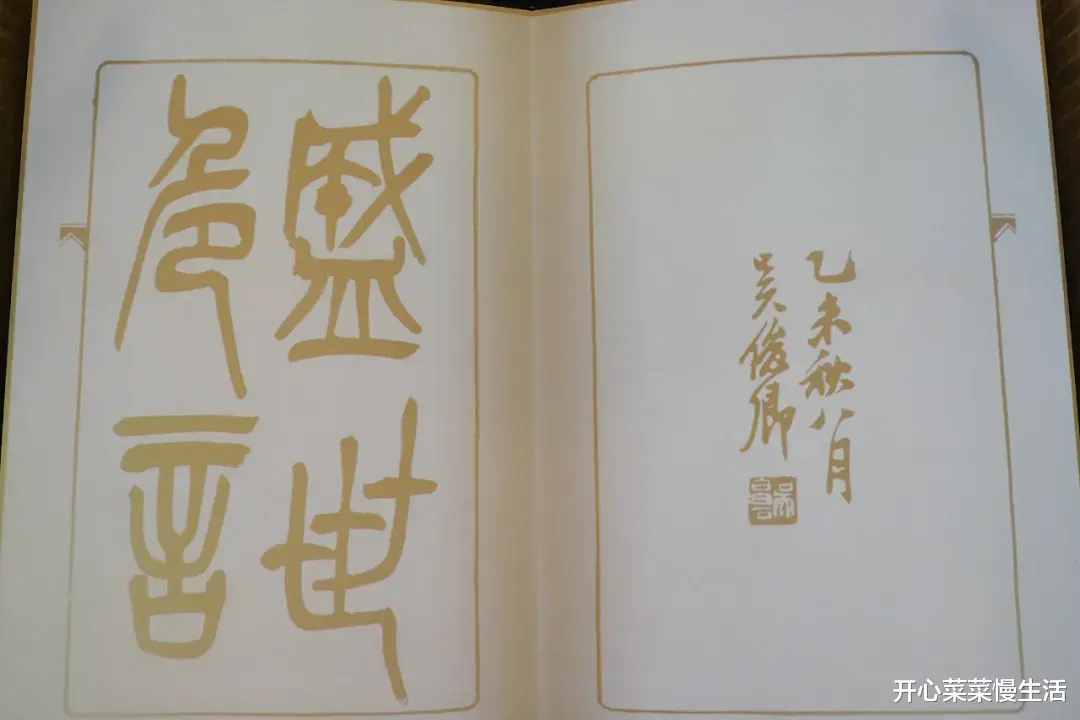 盛世
危言
乙未秋八月
吴俊卿
开心菜菜慢生活